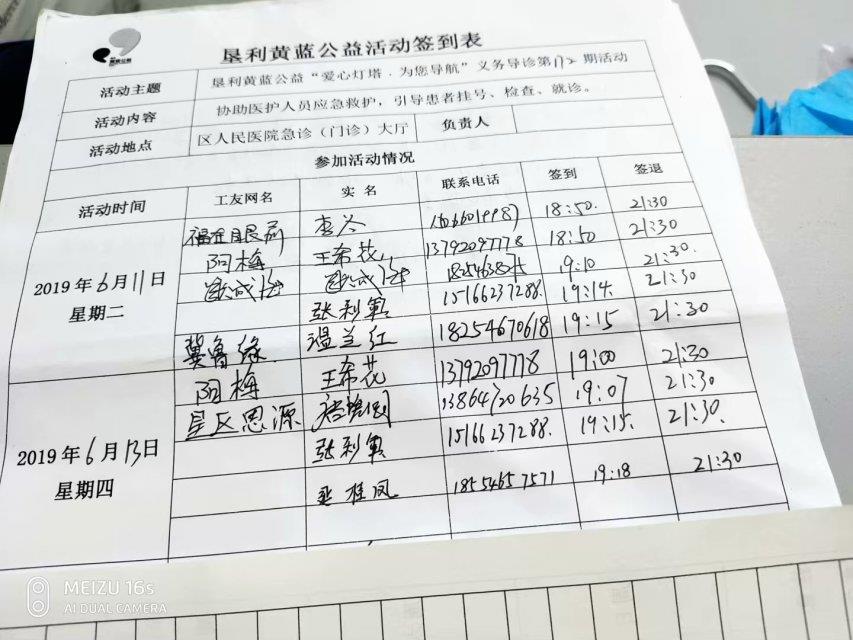 垦利黄蓝公益活动签到表
活动主题 垦利黄蓝公益“爱心灯塔·为您导航”义务导诊第172期活动
活动内容 协助医护人员应急救护，引导患者挂号、检查、就诊。
活动地点 区人民医院急诊（门诊）大厅 负责人
参加活动情况
活动时间 工友网名 实名 联系电话 签到 签退
2019年6月11日 星期二
18:50. 21:30
阿梅 王希花 13792097778 18:50 21:30
19:10 21:30.
张利 15166237288. 19:14. 21:30
冀鲁缘 温兰红 18254670618 19:15 21:30
2019年6月13日 星期四
阿梅 王希花 13792097778 19:00 21:30
星区思源 13864720635 19:07 21:30
张利 15166237288. 19:15. 21:30.
桂凤 18554657571 19:18 21:30
MEIZU 16s
AI DUAL CAMERA